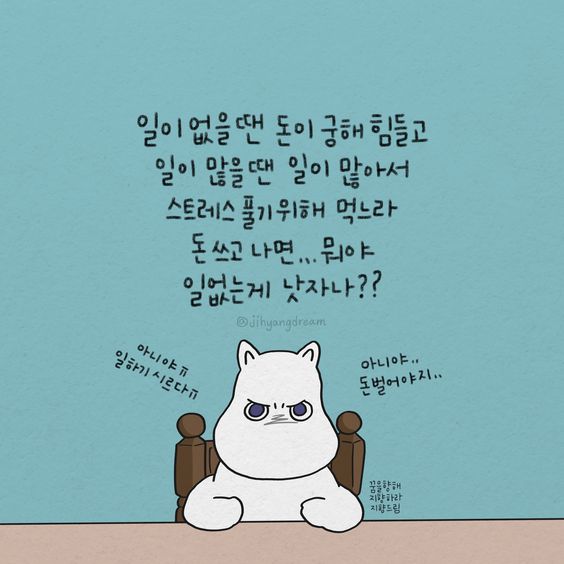 일이 없을땐 돈이 궁해 힘들고
일이 많을땐 일이 많아서
스트레스 풀기위해 먹느라
돈 쓰고 나면... 뭐야
일없는게 낫자나??
@jihyangdream
아니야ㅠ
일하기 시르다ㅠ
아니야..
돈벌어야지..
꿈을향해
지향하라
지향드림